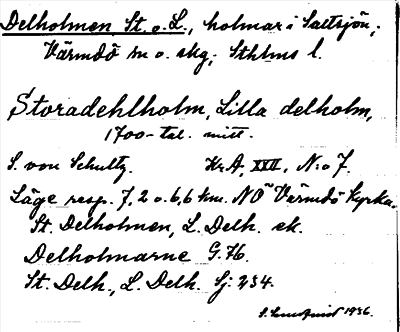 Delholmen St. o. L., holmar i Saltsjön,
Värmdö sn o. skg; Sthlms l.
Storadehlholm, Lilla delholm,
1700-tal. mitt.
S. von Schultz. Kr.A, XXII, N:o 7.
Läge resp. 7,2 o. 6,6 km. NO Värmdö Kyrka.
St. Delholmen, L. Delh. ek.
Delholmarne G.K.
St. Delh., L. Delh. Sj: 234.
1936.